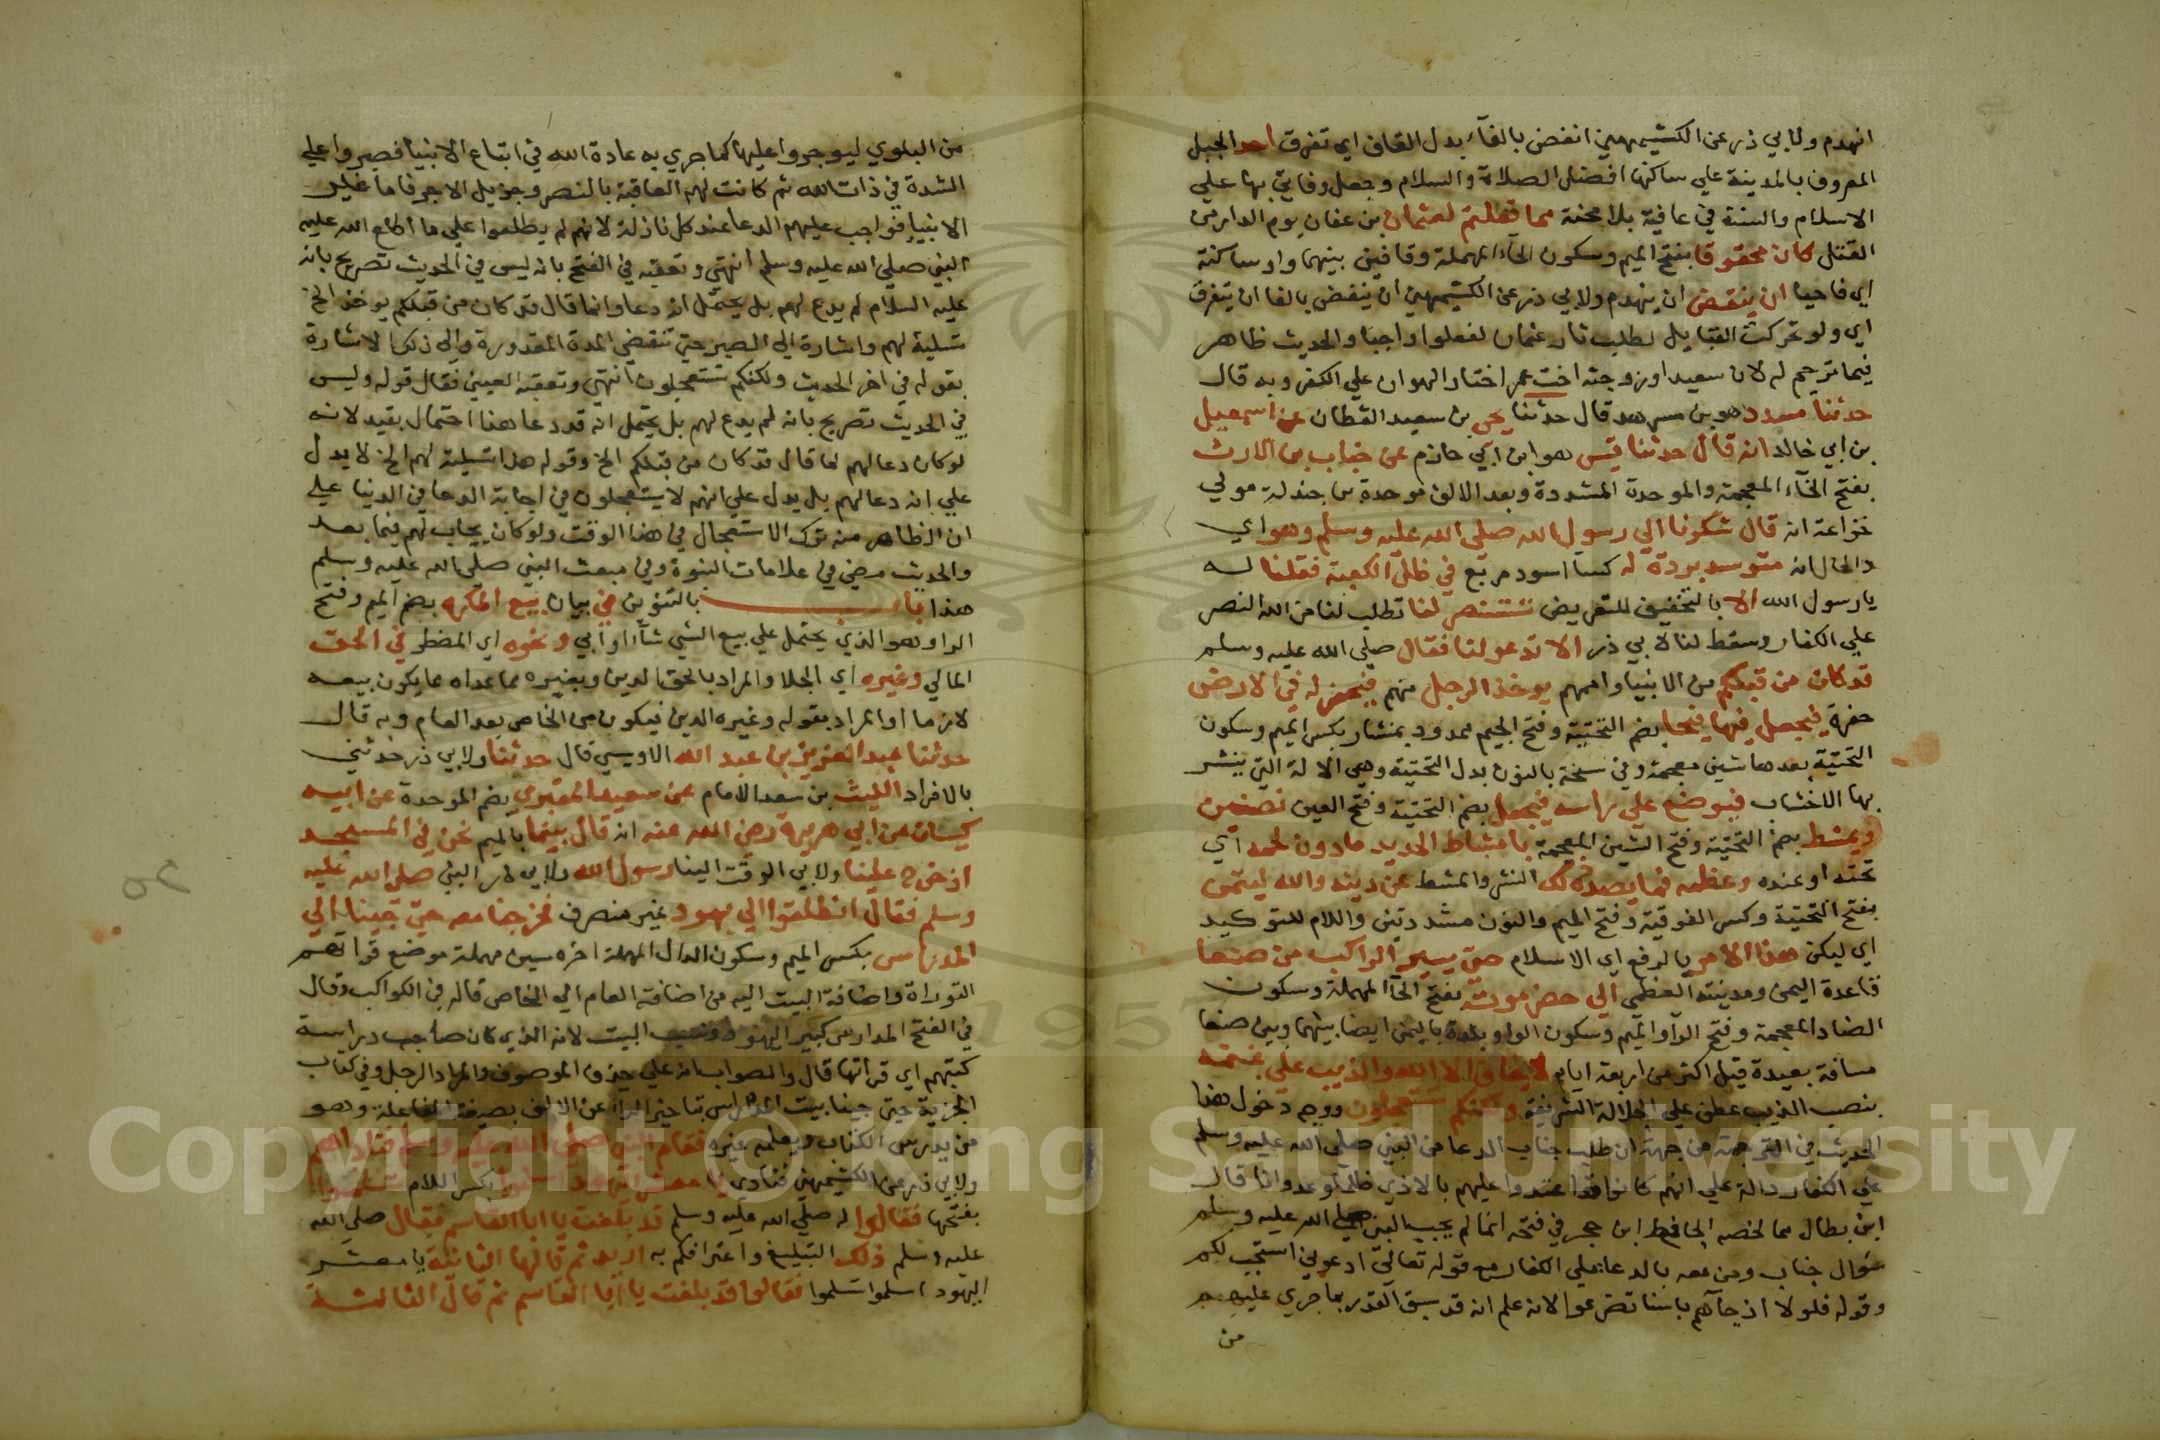 انهدم ولابي ذر عن الكشيمهني انفض بالفآء بدل القاف اي تفرق احد الجبل
المعروف بالمدينة علي ساكنها افضل الصلاة والسلام وجعل وفاتي بها علي
الاسلام والسنة في عافية بلا محنة مما فعلتم لعثمان بن عفان يوم الدار من
القتل كان محقوقا بفتح الميم وسكون الحآء المهملة وقافين بينهما واو ساكنة
اي فاحيا ان ينقض ان ينهدم ولابي ذر عن الكشيمهني ان ينفض بالفا ان يتفرق
اي ولو تحركت القبايل لطلب ثار عثمان لفعلوا واجبا والحديث ظاهر
فيما ترجم له لان سعيدا وزوجته اخت عمر اختارا الهوان علي الكفر وبه قال
حدثنا مسدد هو بن مسرهد قال حدثنا يحي بن سعيد القطان عن اسمعيل
بن ابي خالد انه قال حدثنا قيس هو ابن ابي حازم عن خباب بن الارت
بفتح الخآء المعجمة والموحدة المشددة وبعد الالف موحدة بن جندلة مولي
خزاعة انه قال شكونا الي رسول الله صلي الله عليه وسلم وهو اي
والحال انه متوسد بردة له كسآ اسود مربع في ظل الكعبة فقلنا له
يارسول الله الا بالتخفيف للتعريض تستنصر لنا تطلب لنا من الله النصر
علي الكفار وسقط لنا لابي ذر الا تدعو لنا فقال صلي الله عليه وسلم
قد كان من قبلكم من الانبيا واممهم يوخذ الرجل منهم فيحفر له في الارض
حفرة فيجعل فيها فيجا بضم التحتية وفتح الجيم ممدود بمنشار بكسر الميم وسكون
التحتية بعدها شين معجمة وفي نسخة بالنون بدل التحتية وهي الالة التي ينشر
بها الاخشاب فيوضع علي راسه فيجعل بضم التحتية وفتح العين نصفين
ويمشط بضم التحتية وفتح الشين المعجمة بامشاط الحديد مادون لحمه اي
تحته او عنده وعظمه فما يصده ذلك النشر والمشط عن دينه والله ليتمن
بفتح التحتية وكسر الفوقية وفتح الميم والنون مشددتين واللام للتوكيد
اي ليكن هذا الامر بالرفع اي الاسلام حتي يسير الراكب من صنعا
قاعدة اليمن ومدينته العظمي الي حضرموت بفتح الحآ المهملة وسكون
الضاد المعجمة وفتح الرآ والميم وسكون الواو بلدة باليمن ايضا بينها وبين صنعا
مسافة بعيدة قيل اكثر من اربعة ايام لا يخاف الا الله والذيب علي غنمه
بنصب الذيب عطف علي الجلالة الشريفة ولكنكم تستعجلون ووجه دخول هذا
الحديث في الترجمة من جهة ان طلب خباب الدعا من النبي صلي الله عليه وسلم
علي الكفار دالة علي انهم كانوا قد اعتدوا عليهم بالاذي ظلما وعدوانا قال
ابن بطال مما لخصه الحافظ ابن حجر في فتحه انما لم يجب النبي صلي الله عليه وسلم
سوال خباب ومن معه بالدعا علي الكفار مع قوله تعالي ادعوني استجب لكم
وقوله فلولا اذ جآهم باسنا تضرعوا لانه علم انه قد سبق القدر بما جري عليهم
من
من البلوي ليوجروا عليها كما جري به عادة الله في اتباع الانبيا فصبروا علي
الشدة في ذات الله ثم كانت لهم العاقبة بالنصر وجزيل الاجر فاما غير
الانبيا فواجب عليهم الدعا عند كل نازلة لانهم لم يطلعوا علي ما اطلع الله عليه
النبي صلي الله عليه وسلم انتهي وتعقبه في الفتح بانه ليس في الحديث تصريح بانه
عليه السلام لم يدع لهم بل يحتمل انه دعا وانما قال قد كان من قبلكم يوخذ الخ
تسلية لهم واشارة الي الصبر حتي تنقضي المدة المقدورة والي ذلك الاشارة
بقوله في اخر الحديث ولكنكم تستعجلون انتهي وتعقبه العيني فقال قوله وليس
في الحديث تصريح بانه لم يدع لهم بل يحتمل انه قد دعا هذا احتمال بعيد لانه
لو كان دعا لهم لما قال قد كان من قبلكم الخ وقوله هذا تسلية لهم الخ لا يدل
علي انه دعا لهم بل يدل علي انهم لا يستعجلون في اجابة الدعا في الدنيا علي
ان الظاهر منه ترك الاستعجال في هذا الوقت ولو كان يجاب لهم فيما بعد
والحديث مضي في علامات النبوة وفي مبعث النبي صلي الله عليه وسلم
هذا باب بالتنوين في بيان بيع المكره بضم الميم وفتح
الرا وهو الذي يحتمل علي بيع الشي شآء او ابي ونحوه اي المضطر في الحق
المالي وغيره اي الجلا والمراد بالحق الدين وبغيره ما عداه مما يكون بيعه
لازما او المراد بقوله وغيره الدين فيكون من الخاص بعد العام وبه قال
حدثنا عبد العزيز بن عبد الله الاويسي قال حدثنا ولابي ذر حدثني
بالافراد الليث بن سعد الامام عن سعيد المقبري بضم الموحدة عن ابيه
كيسان عن ابي هريرة رضي الله عنه انه قال بينما بالميم نحن في المسجد
اذ خرج علينا ولابي الوقت الينا رسول الله ولابي ذر النبي صلي الله عليه
وسلم فقال انطلقوا الي يهود غير منصرف فخرجنا معه حتي جينا الي
المدراس بكسر الميم وسكون الدال المهملة اخره سين مهملة موضع قراتهم
التوراة واضافة البيت اليه من اضافة العام الي الخاص قاله في الكواكب وقال
في الفتح المدارس كبير اليهود ونسب البيت لانه الذي كان صاحب دراسة
كتبهم اي قراتها قال والصواب انه علي حذف الموصوف والمراد الرجل وفي كتاب
الجزية حتي جينا بيت المدراس بتاخير الرآء عن الالف بصيغة الفاعلة وهو
من يدرس الكتاب ويعلمه غيره فقام النبي صلي الله عليه وسلم فناداهم
ولابي ذر عن الكشيمهني فنادي يا معشر اليهود اسلموا بكسر اللام تسلموا
بفتحها فقالوا له صلي الله عليه وسلم قد بلغت يا ابا القاسم فقال صلي الله
عليه وسلم ذلك التبليغ واعترافكم به اريد ثم قالها الثانية يا معشر
اليهود اسلموا تسلموا فقالوا قد بلغت يا ابا القاسم ثم قال الثالثة
Copyright © King Saud University
1957